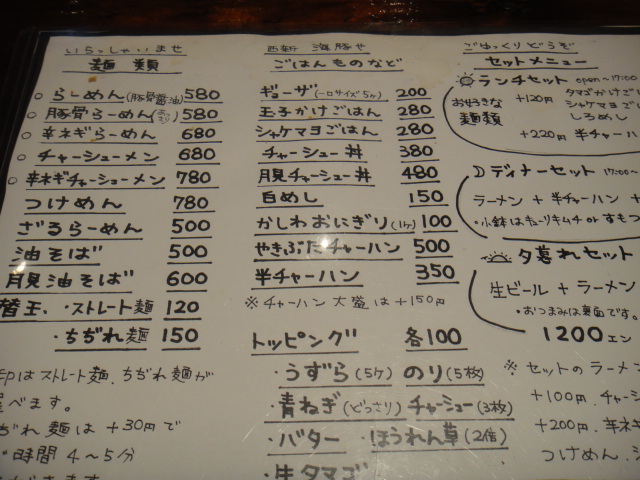 いらっしゃいませ
麺類
○ らーめん(豚骨醤油) 580
○ 豚骨らーめん 580
○ 辛ネギらーめん 680
○ チャーシューメン 680
○ 辛ネギチャーシューメン 780
つけめん 780
ざるらーめん 500
油そば 500
月見油そば 600
替玉、・ストレート麺 120
・ちぢれ麺 150
印はストレート麺、ちぢれ麺が
べます。
ぢれ麺は +30円で
時間 4〜5分
西新 海豚や
ごはんものなど
ギョーザ(一口サイズ5ヶ) 200
玉子かけごはん 280
シャケマヨごはん 280
チャーシュー丼 380
月見チャーシュー丼 480
白めし 150
かしわおにぎり(1ヶ) 100
やきぶたチャーハン 500
半チャーハン 350
※チャーハン大盛は+150円
トッピング 各100
・うずら(5ヶ) のり(5枚)
・青ねぎ(どっさり) チャーシュー(3枚)
・バター ・ほうれん草(2倍)
・生タマゴ
ごゆっくりどうぞ
セットメニュー
ランチセット open〜17:00
お好きな麺類
+120円 タマゴかけごは
シャケマヨごは
しろめし
+220円 半チャーハ
ディナーセット 17:00〜
ラーメン + 半チャーハン +
・小鉢はキューリキムチ or すもつ
夕暮れセット
生ビール + ラーメン
・おつまみは裏面です。
1200エン
※ セットのラーメン
+100円、チャーシ
+200円、辛ネ
つけめん、